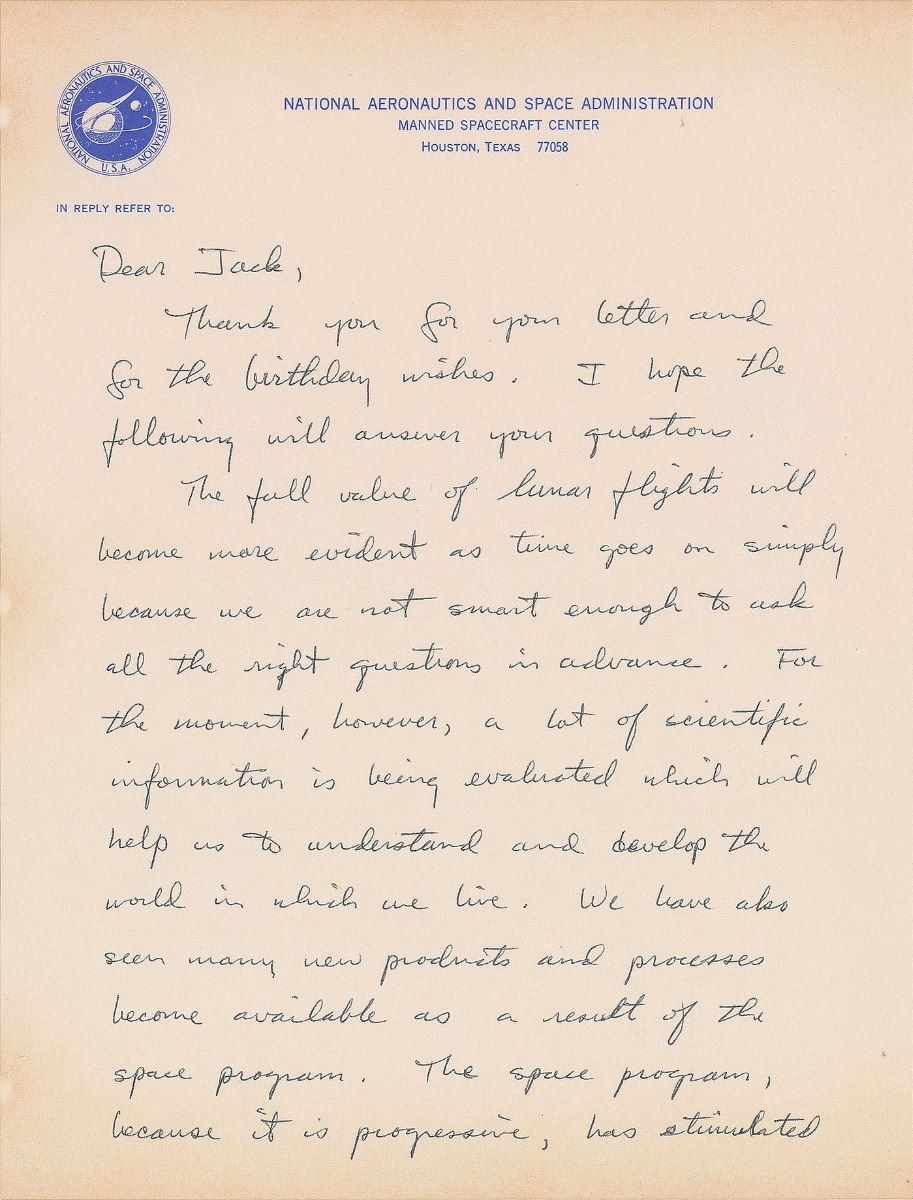 NATIONAL AERONAUTICS AND SPACE ADMINISTRATION
U.S.A.
NATIONAL AERONAUTICS AND SPACE ADMINISTRATION
MANNED SPACECRAFT CENTER
HOUSTON, TEXAS 77058
IN REPLY REFER TO:
Dear Jack,
Thank you for your letter and
for the birthday wishes. I hope the
following will answer your questions.
The full value of lunar flights will
become more evident as time goes on simply
because we are not smart enough to ask
all the right questions in advance. For
the moment, however, a lot of scientific
information is being evaluated which will
help us to understand and develop the
world in which we live. We have also
seen many new products and processes
become available as a result of the
space program. The space program,
because it is progressive, has stimulated